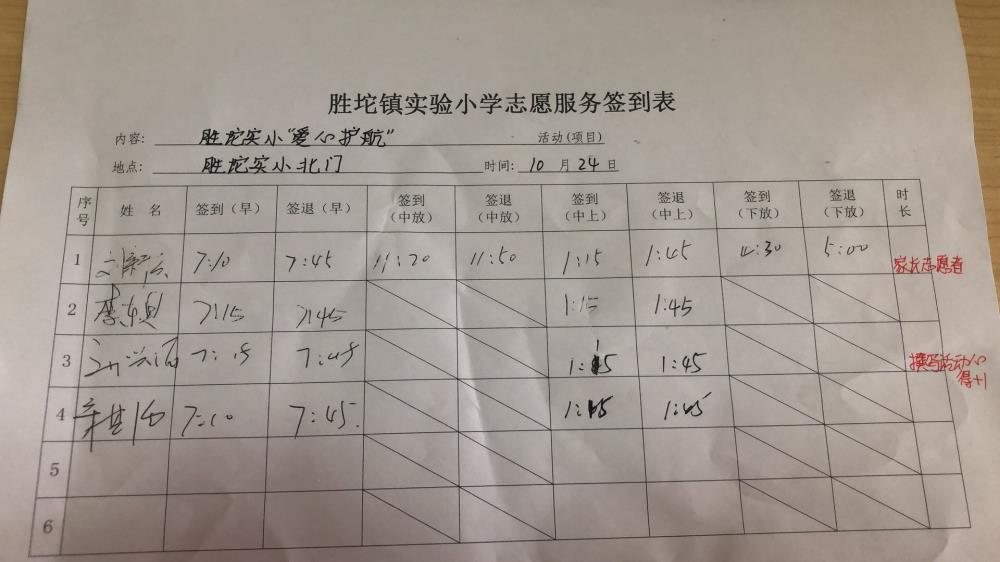 胜坨镇实验小学志愿服务签到表
内容: 胜坨实小"爱心护航" 活动(项目)
地点: 胜坨实小北门 时间: 10 月 24 日
序号 姓 名 签到（早） 签退（早） 签到（中放） 签退（中放） 签到（中上） 签退（中上） 签到（下放） 签退（下放） 时长
1 7:10 7:45 11:20 11:50 1:15 1:45 4:30 5:00 家长志愿者
2 7:15 7:45 1:15 1:45
3 7:15 7:45 1:15 1:45 撰写活动心得+1
4 7:10 7:45. 1:15 1:45
5
6